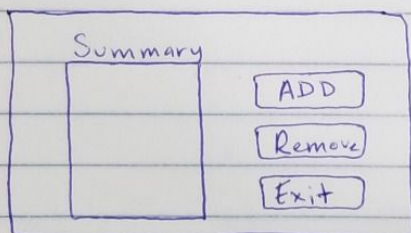 Summary
ADD
Remove
Exit